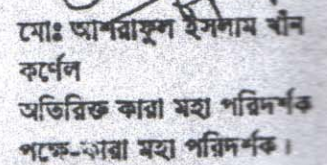 মোঃ আশরাফুল ইসলাম খাঁন
কর্ণেল
অতিরিক্ত কারা মহা পরিদর্শক
পক্ষে-কারা মহা পরিদর্শক।